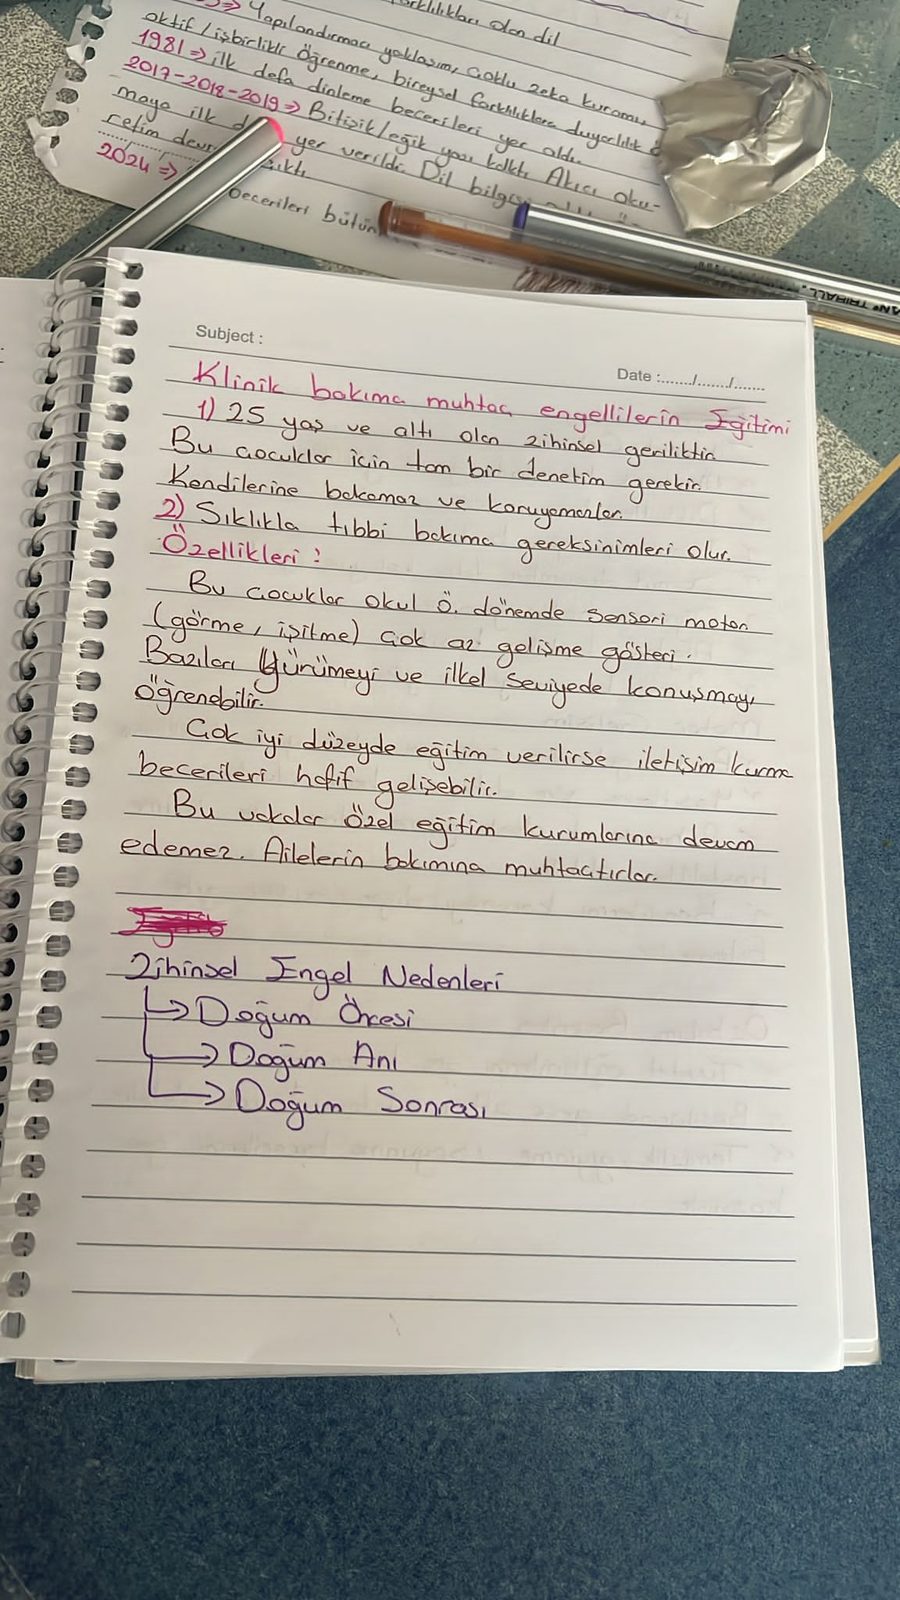 farklılıkları olan dil
Yapılandırmacı yaklaşım, çoklu zeka kuramı,
aktif/işbirlikli öğrenme, bireysel farklılıklara duyarlılık
1981 => ilk defa dinleme becerileri yer aldı.
2017-2018-2019 => Bitişik/eğik yazı kalktı. Akıcı oku-
maya ilk yer verildi. Dil bilgisi
retim
2024 =>
becerileri bütün
Subject :
Date :......./......./.......
Klinik bakıma muhtaç engellilerin Eğitimi
1) 25 yaş ve altı olan zihinsel geriliktir.
Bu çocuklar için tam bir denetim gerekir.
Kendilerine bakamaz ve koruyamazlar.
2) Sıklıkla tıbbi bakıma gereksinimleri olur.
Özellikleri :
Bu çocuklar okul Ö. dönemde sensori motor
(görme, işitme) çok az gelişme gösteri.
Bazıları Yürümeyi ve ilkel seviyede konuşmayı
öğrenebilir.
Çok iyi düzeyde eğitim verilirse iletişim kurma
becerileri hafif gelişebilir.
Bu vakalar özel eğitim kurumlarına devam
edemez. Ailelerin bakımına muhtaçtırlar.
Zihinsel Engel Nedenleri
→ Doğum Öncesi
→ Doğum Anı
→ Doğum Sonrası